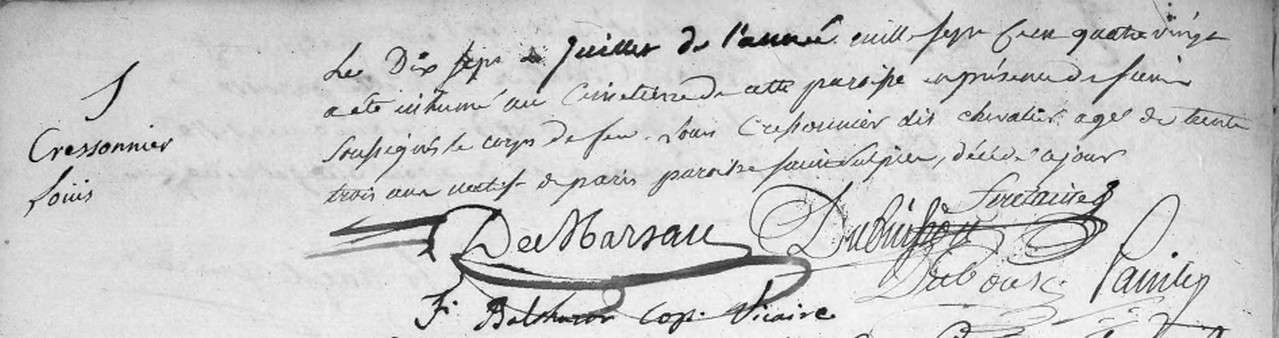 S
Cressonnier
Louis
Le Dix sept de Juillet de l'année mille sept cens quatre vingt
a eté inhumé au Cimetiere de cette paroisse en présence de
soussignés le corps de feu Louis Cressonnier dit chevalier agé de trente
trois ans natif de paris paroisse saint Sulpice, décédé a jour
De Marsau Dubuisson
Duboux
f. Balthazar cap. Vicaire